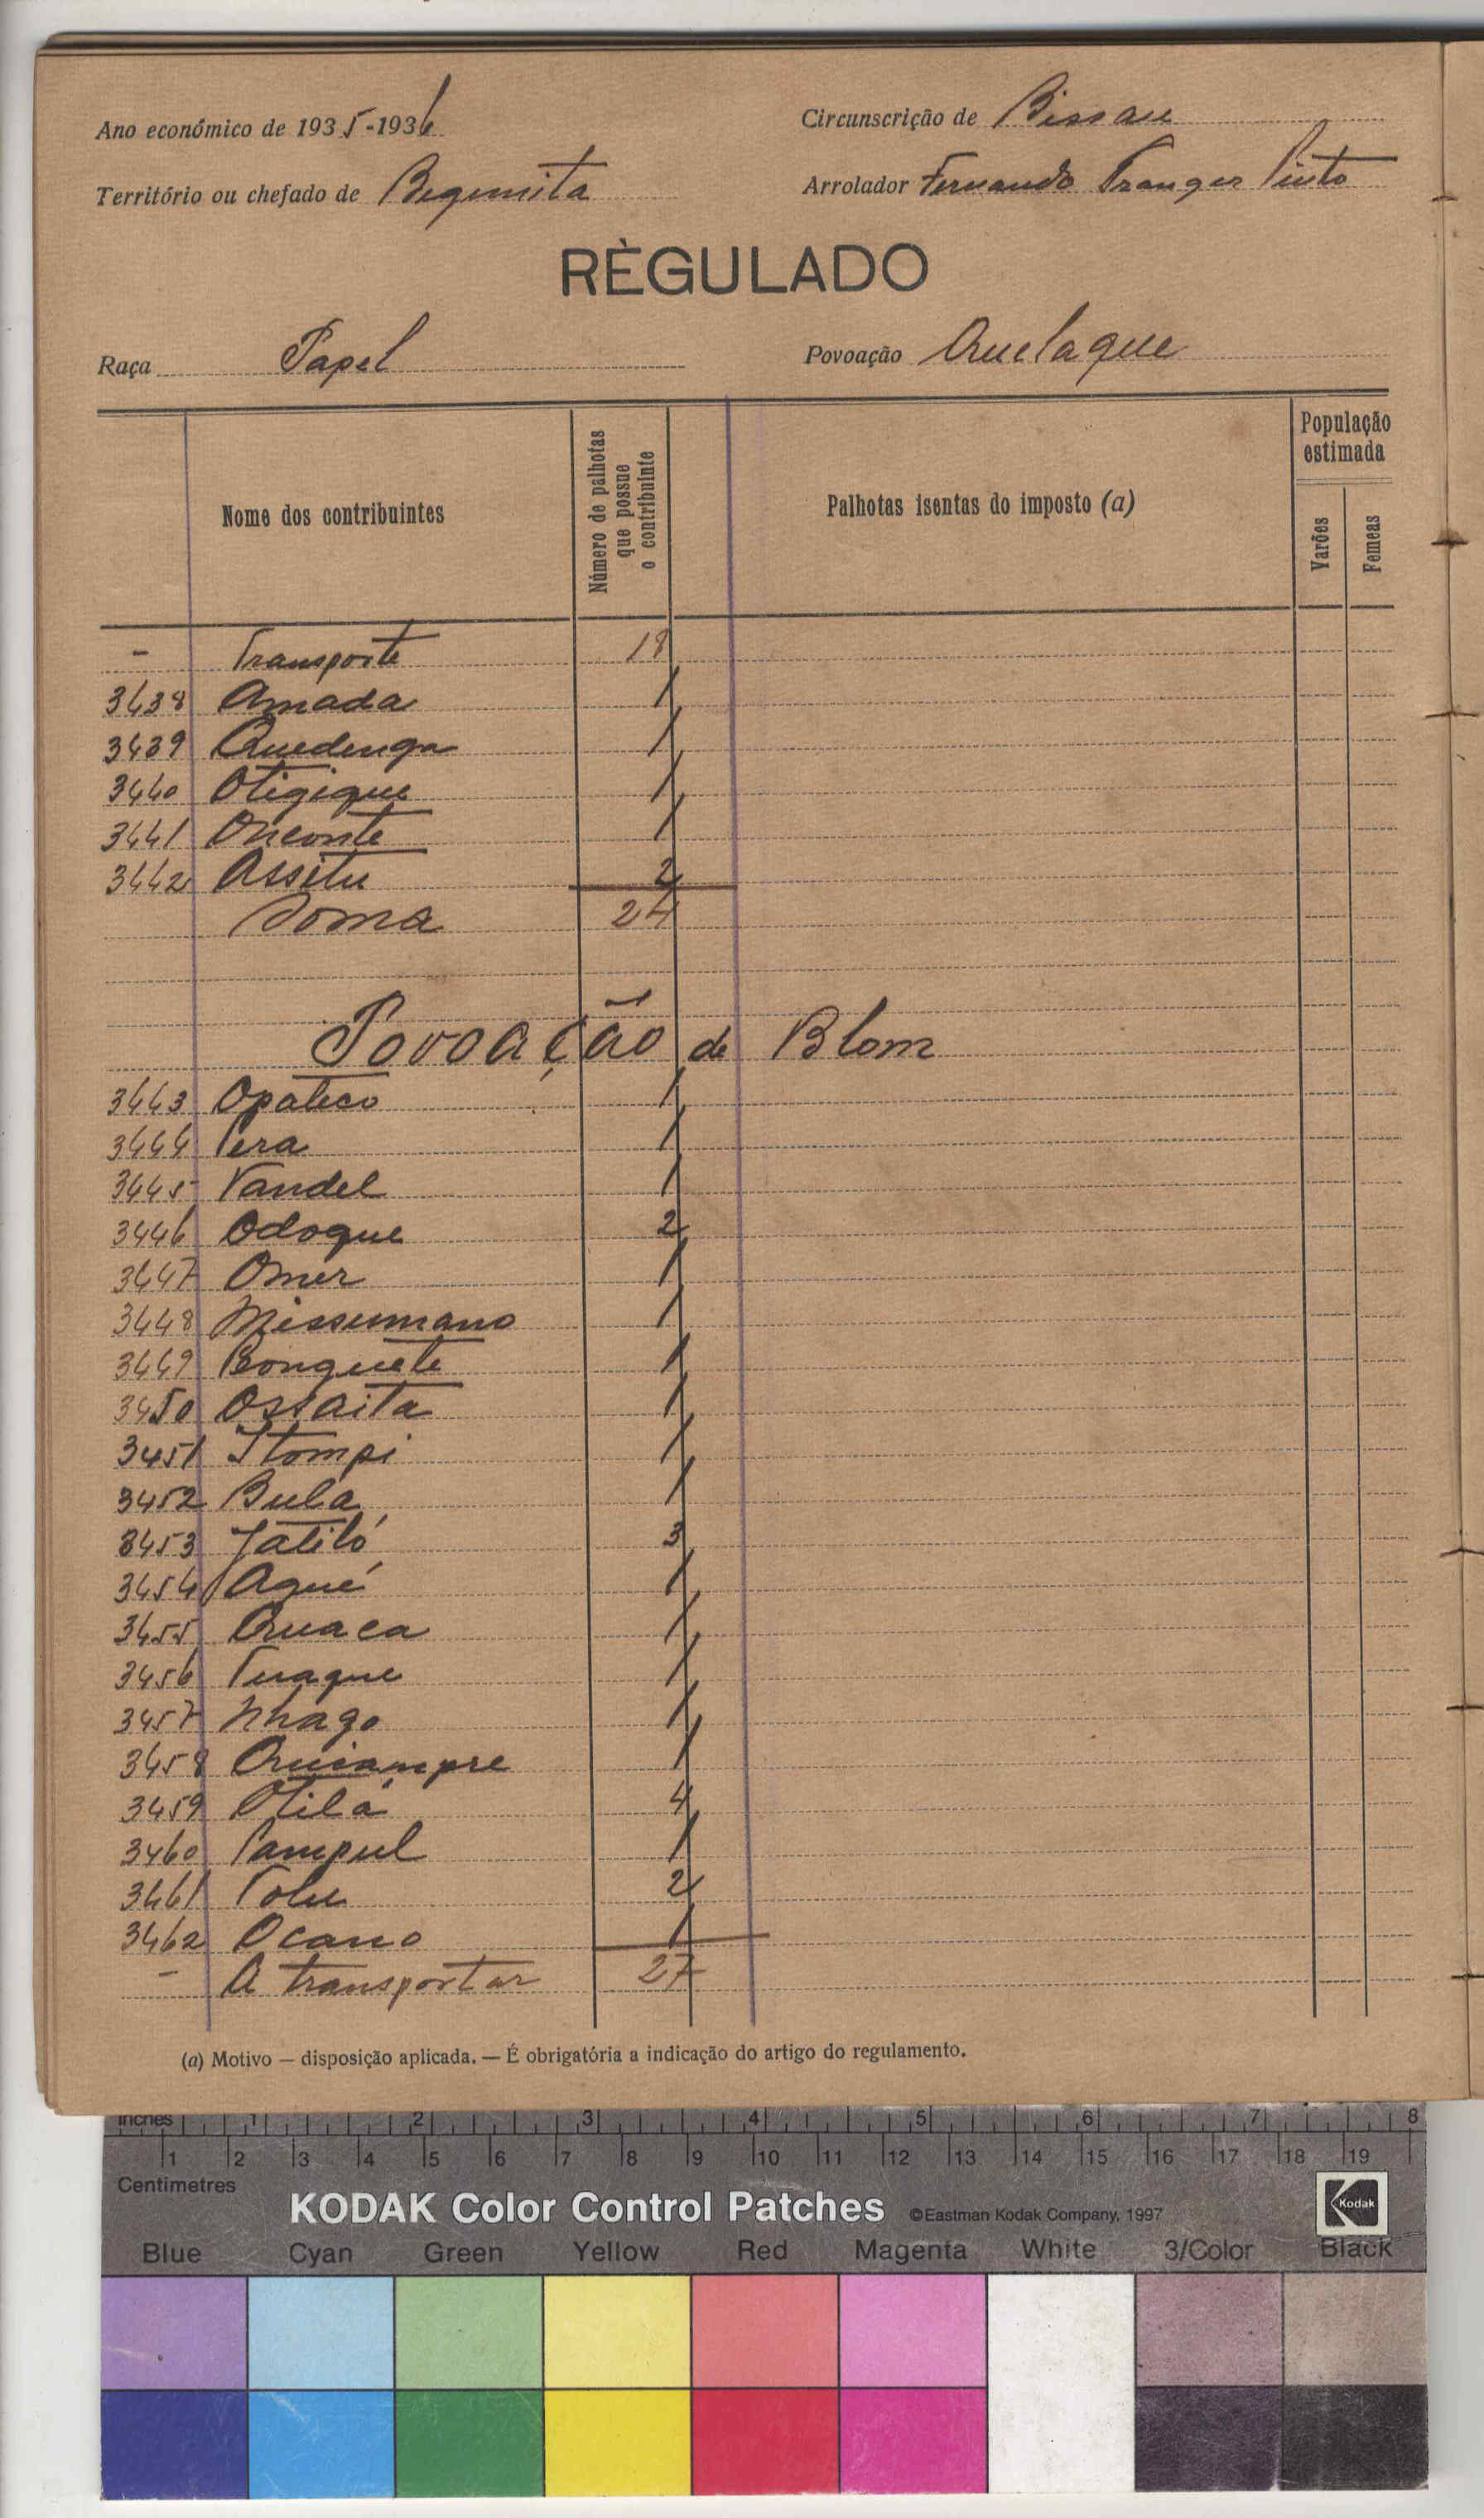 Ano económico de 1935-1936
Circunscrição de Bissau
Território ou chefado de Bigimita
Arrolador Fernando Pinto
RÈGULADO
Raça Papel
Povoação Quelaque
Nome dos contribuintes
Número de palhotas que possue o contribuinte
Palhotas isentas do imposto (a)
População estimada
Varões
Femeas
- Transporte 18
3438 Amada 1
3439 Quedenga 1
3440 Otigique 1
3441 Oneonte 1
3442 Assitu 2
Soma 24
Povoação de Blom
3443 Opateco 1
3444 Pera 1
3445 Vandel 1
3446 Odoque 2
3447 Omer 1
3448 Missumano 1
3449 Bonquete 1
3450 Ossaita 1
3451 Itompi 1
3452 Bula 1
3453 Jatiló 3
3454 Aqué 1
3455 Quaca 1
3456 Tuaque 1
3457 Nhago 1
3458 Quiampre 1
3459 Otilá 4
3460 Pampul 1
3461 Tolu 2
3462 Ocano 1
- A transportar 27
(a) Motivo — disposição aplicada. — É obrigatória a indicação do artigo do regulamento.
Inches 1 2 3 4 5 6 7 8
1 2 3 4 5 6 7 8 9 10 11 12 13 14 15 16 17 18 19
Centimetres
KODAK Color Control Patches ©Eastman Kodak Company, 1997 Kodak
Blue Cyan Green Yellow Red Magenta White 3/Color Black